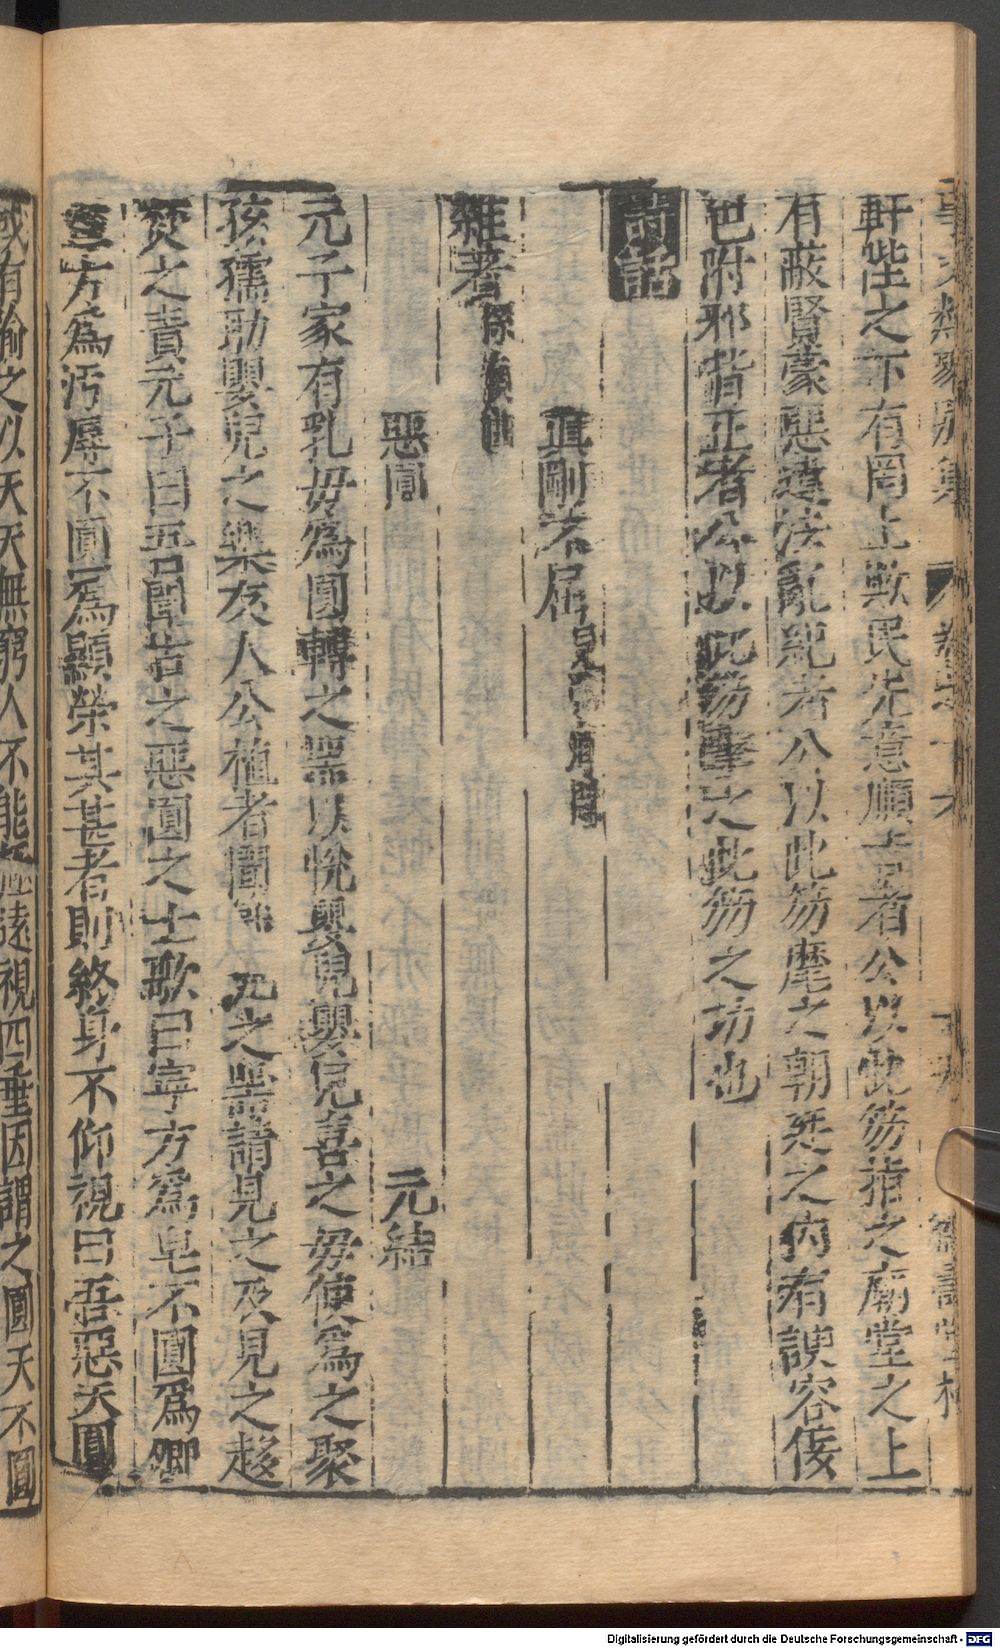 事文類聚別集
軒陛之下有罔上欺民先意順旨者公以此笏指之廟堂之上
有蔽賢蒙惡違法亂紀者公以此笏麾之朝廷之內有諛容佞
色附邪背正者公以此笏擊之此笏之功也
詩話
真剛不屈
雜著
惡圓 元結
元子家有乳母為圓轉之器以悅嬰兒嬰兒喜之母使為之聚
孩孺助嬰兒之樂友人公植者聞 元之器請見之及見之趍
焚之責元子曰吾聞古之惡圓之士歌曰寧方為皂不圓為卿
寧方為污辱不圓為顯榮其甚者則終身不仰視曰吾惡天圓
或有喻之以天天無窮人不能極遠視四垂因謂之圓天不圓
Digitalisierung gefördert durch die Deutsche Forschungsgemeinschaft - DFG